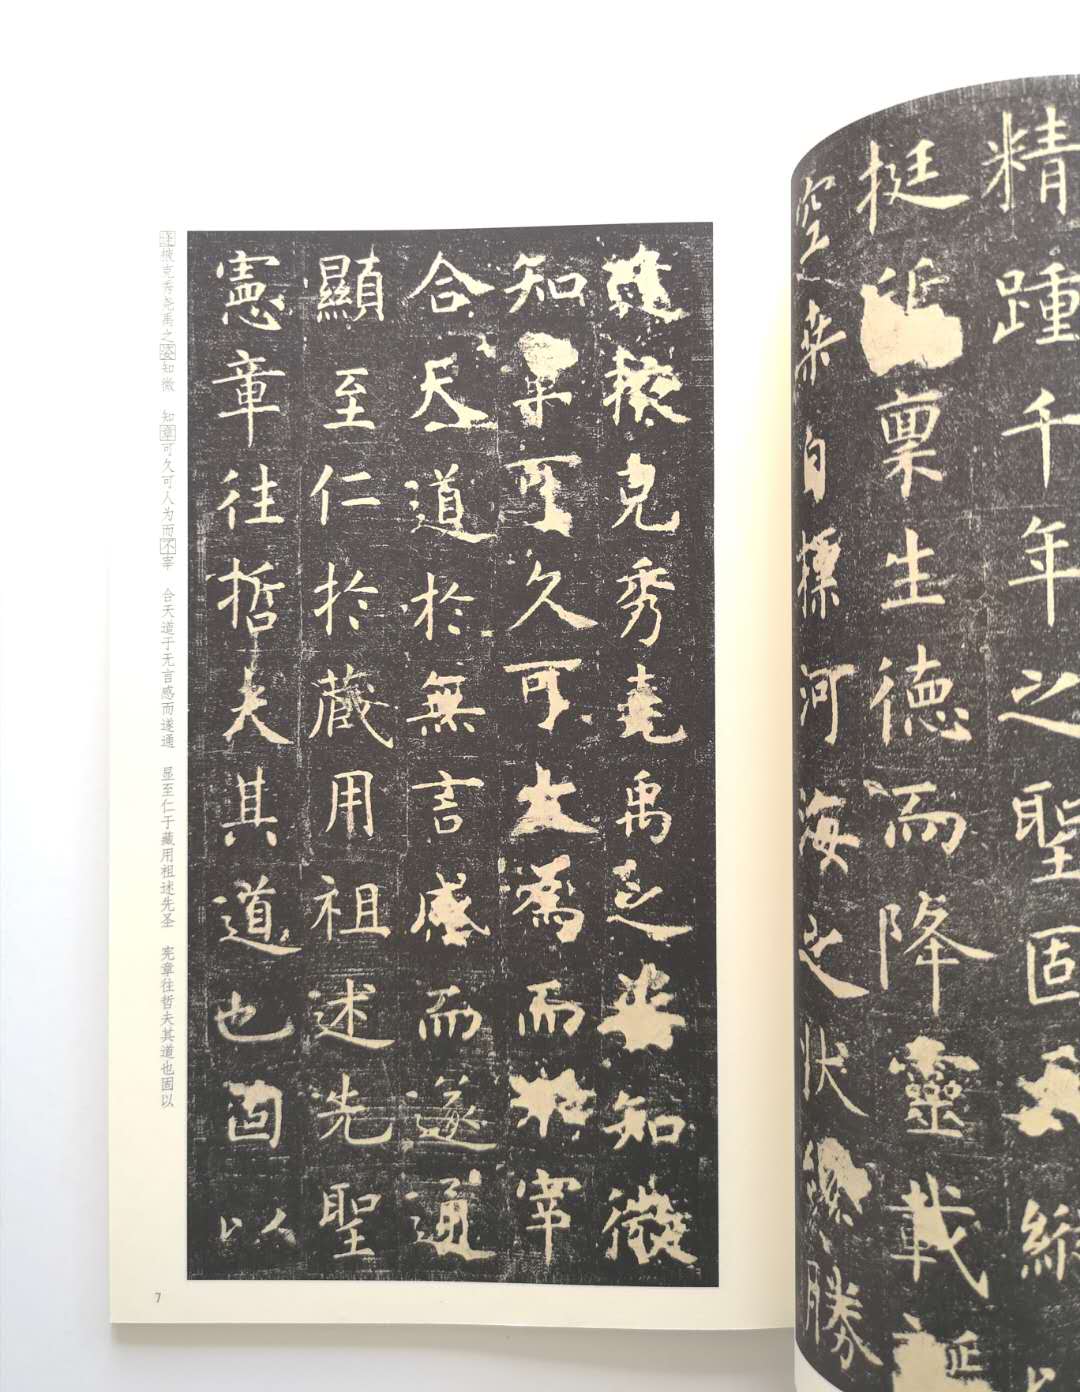 精踵千年之聖固天縱以
挺質稟生德而降靈載誕
空桑自標河海之狀纔勝
逢掖克秀堯禹之姿知微
知章可久可大為而不宰
合天道於無言感而遂通
顯至仁於藏用祖述先聖
憲章往哲夫其道也固以
逢掖克秀尧禹之姿知微 知章可久可人为而不宰 合天道于无言感而遂通 显至仁于藏用祖述先圣 宪章往哲夫其道也固以
7